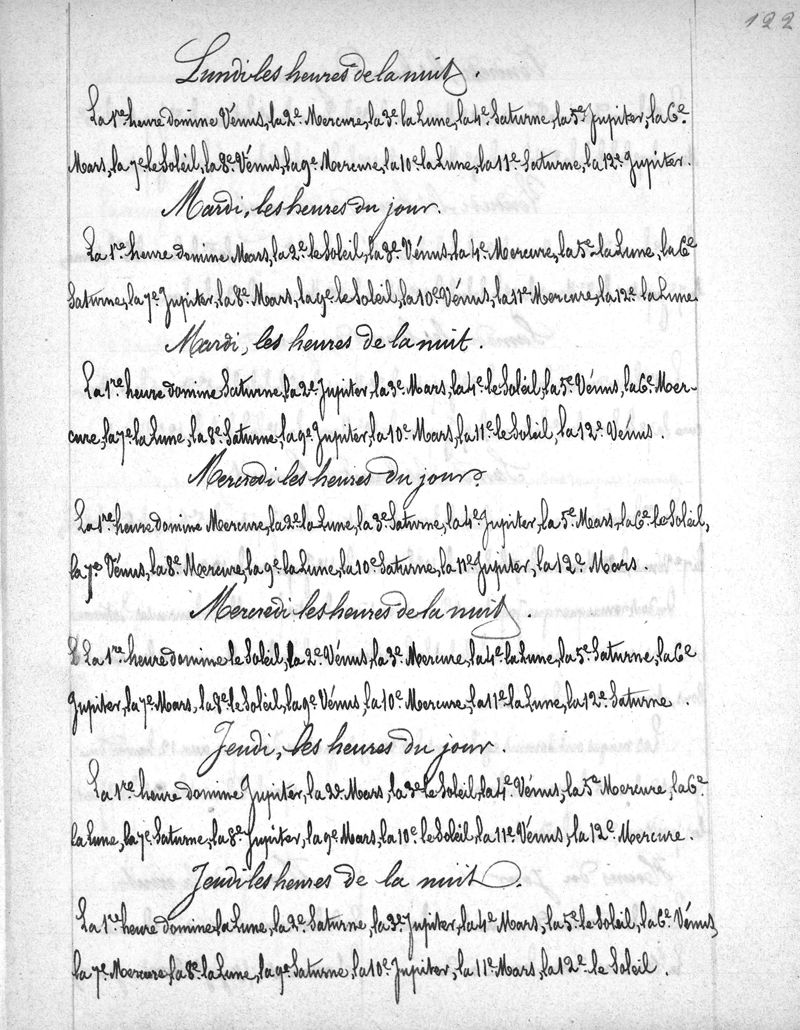 122
Lundi les heures de la nuit.
La 1re heure domine Vénus, la 2e Mercure, la 3e la Lune, la 4e Saturne, la 5e Jupiter, la 6e
Mars, la 7e le Soleil, la 8e Vénus, la 9e Mercure, la 10e la Lune, la 11e Saturne, la 12e Jupiter.
Mardi, les heures du jour.
La 1re heure domine Mars, la 2e le Soleil, la 3e Vénus, la 4e Mercure, la 5e la Lune, la 6e
Saturne, la 7e Jupiter, la 8e Mars, la 9e le Soleil, la 10e Vénus, la 11e Mercure, la 12e la Lune.
Mardi, les heures de la nuit.
La 1re heure domine Saturne, la 2e Jupiter, la 3e Mars, la 4e le Soleil, la 5e Vénus, la 6e Mer-
cure, la 7e la Lune, la 8e Saturne, la 9e Jupiter, la 10e Mars, la 11e le Soleil, la 12e Vénus.
Mercredi les heures du jour.
La 1re heure domine Mercure, la 2e la Lune, la 3e Saturne, la 4e Jupiter, la 5e Mars, la 6e le Soleil,
la 7e Vénus, la 8e Mercure, la 9e la Lune, la 10e Saturne, la 11e Jupiter, la 12e Mars.
Mercredi les heures de la nuit.
La 1re heure domine le Soleil, la 2e Vénus, la 3e Mercure, la 4e la Lune, la 5e Saturne, la 6e
Jupiter, la 7e Mars, la 8e le Soleil, la 9e Vénus, la 10e Mercure, la 11e la Lune, la 12e Saturne.
Jeudi, les heures du jour.
La 1re heure domine Jupiter, la 2e Mars, la 3e le Soleil, la 4e Vénus, la 5e Mercure, la 6e
la Lune, la 7e Saturne, la 8e Jupiter, la 9e Mars, la 10e le Soleil, la 11e Vénus, la 12e Mercure.
Jeudi les heures de la nuit.
La 1re heure domine la Lune, la 2e Saturne, la 3e Jupiter, la 4e Mars, la 5e le Soleil, la 6e Vénus,
la 7e Mercure, la 8e la Lune, la 9e Saturne, la 10e Jupiter, la 11e Mars, la 12e le Soleil.